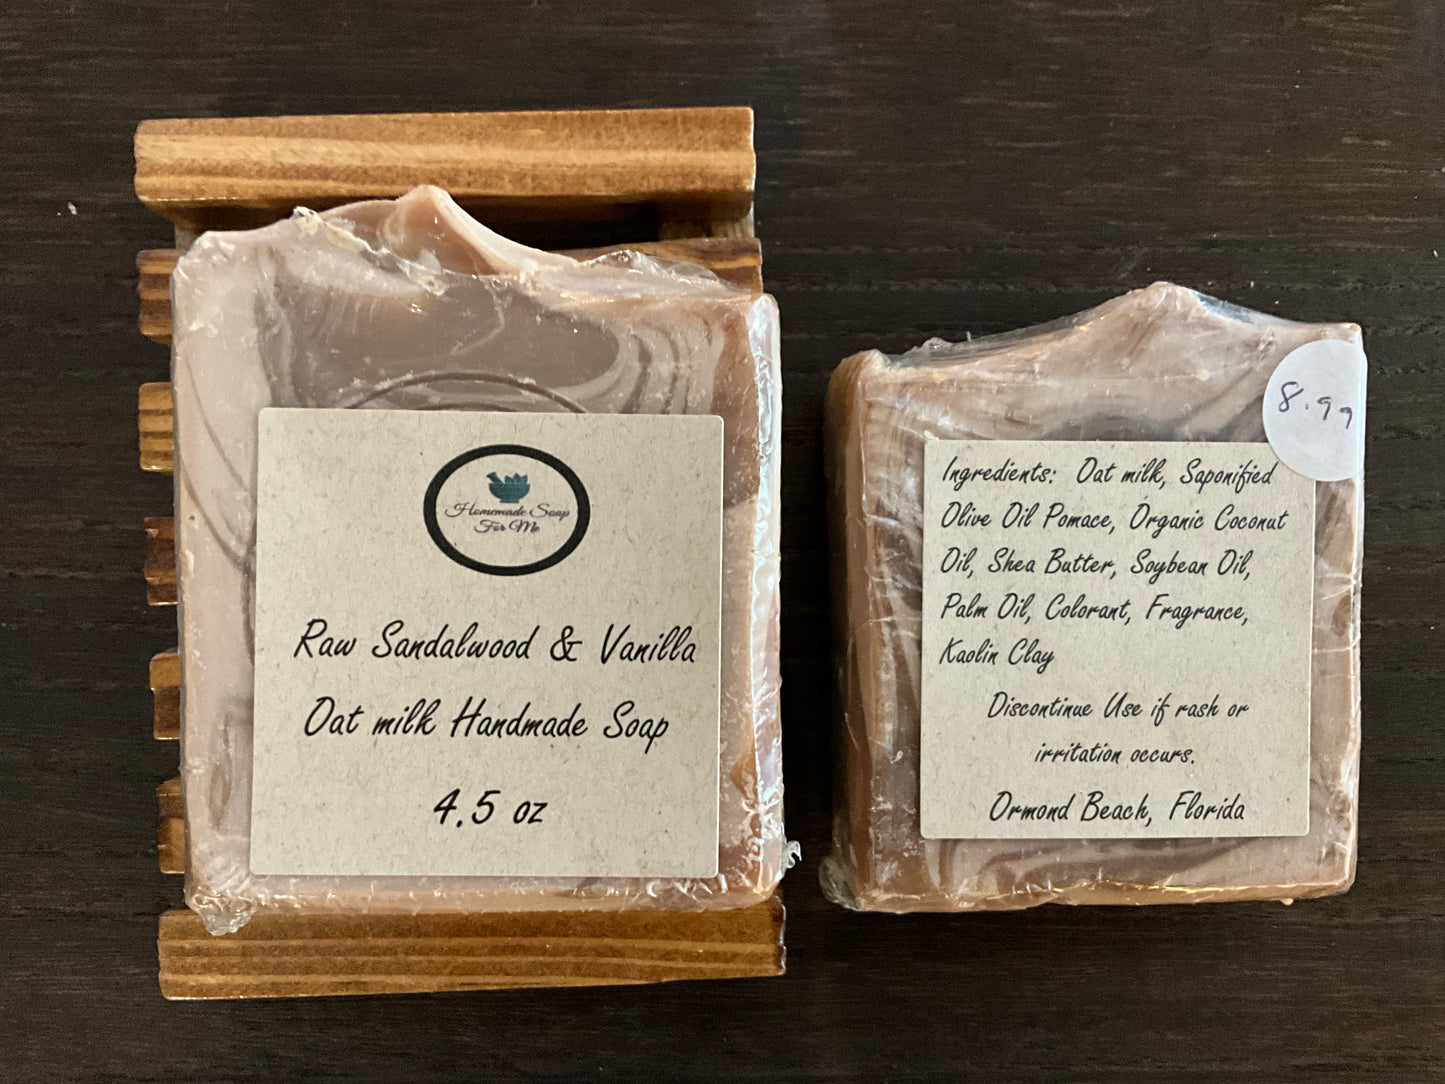 Homemade Soap
For Me
Raw Sandalwood & Vanilla
Oat milk Handmade Soap
4.5 oz
8.99
Ingredients: Oat milk, Saponified
Olive Oil Pomace, Organic Coconut
Oil, Shea Butter, Soybean Oil,
Palm Oil, Colorant, Fragrance,
Kaolin Clay
Discontinue Use if rash or
irritation occurs.
Ormond Beach, Florida